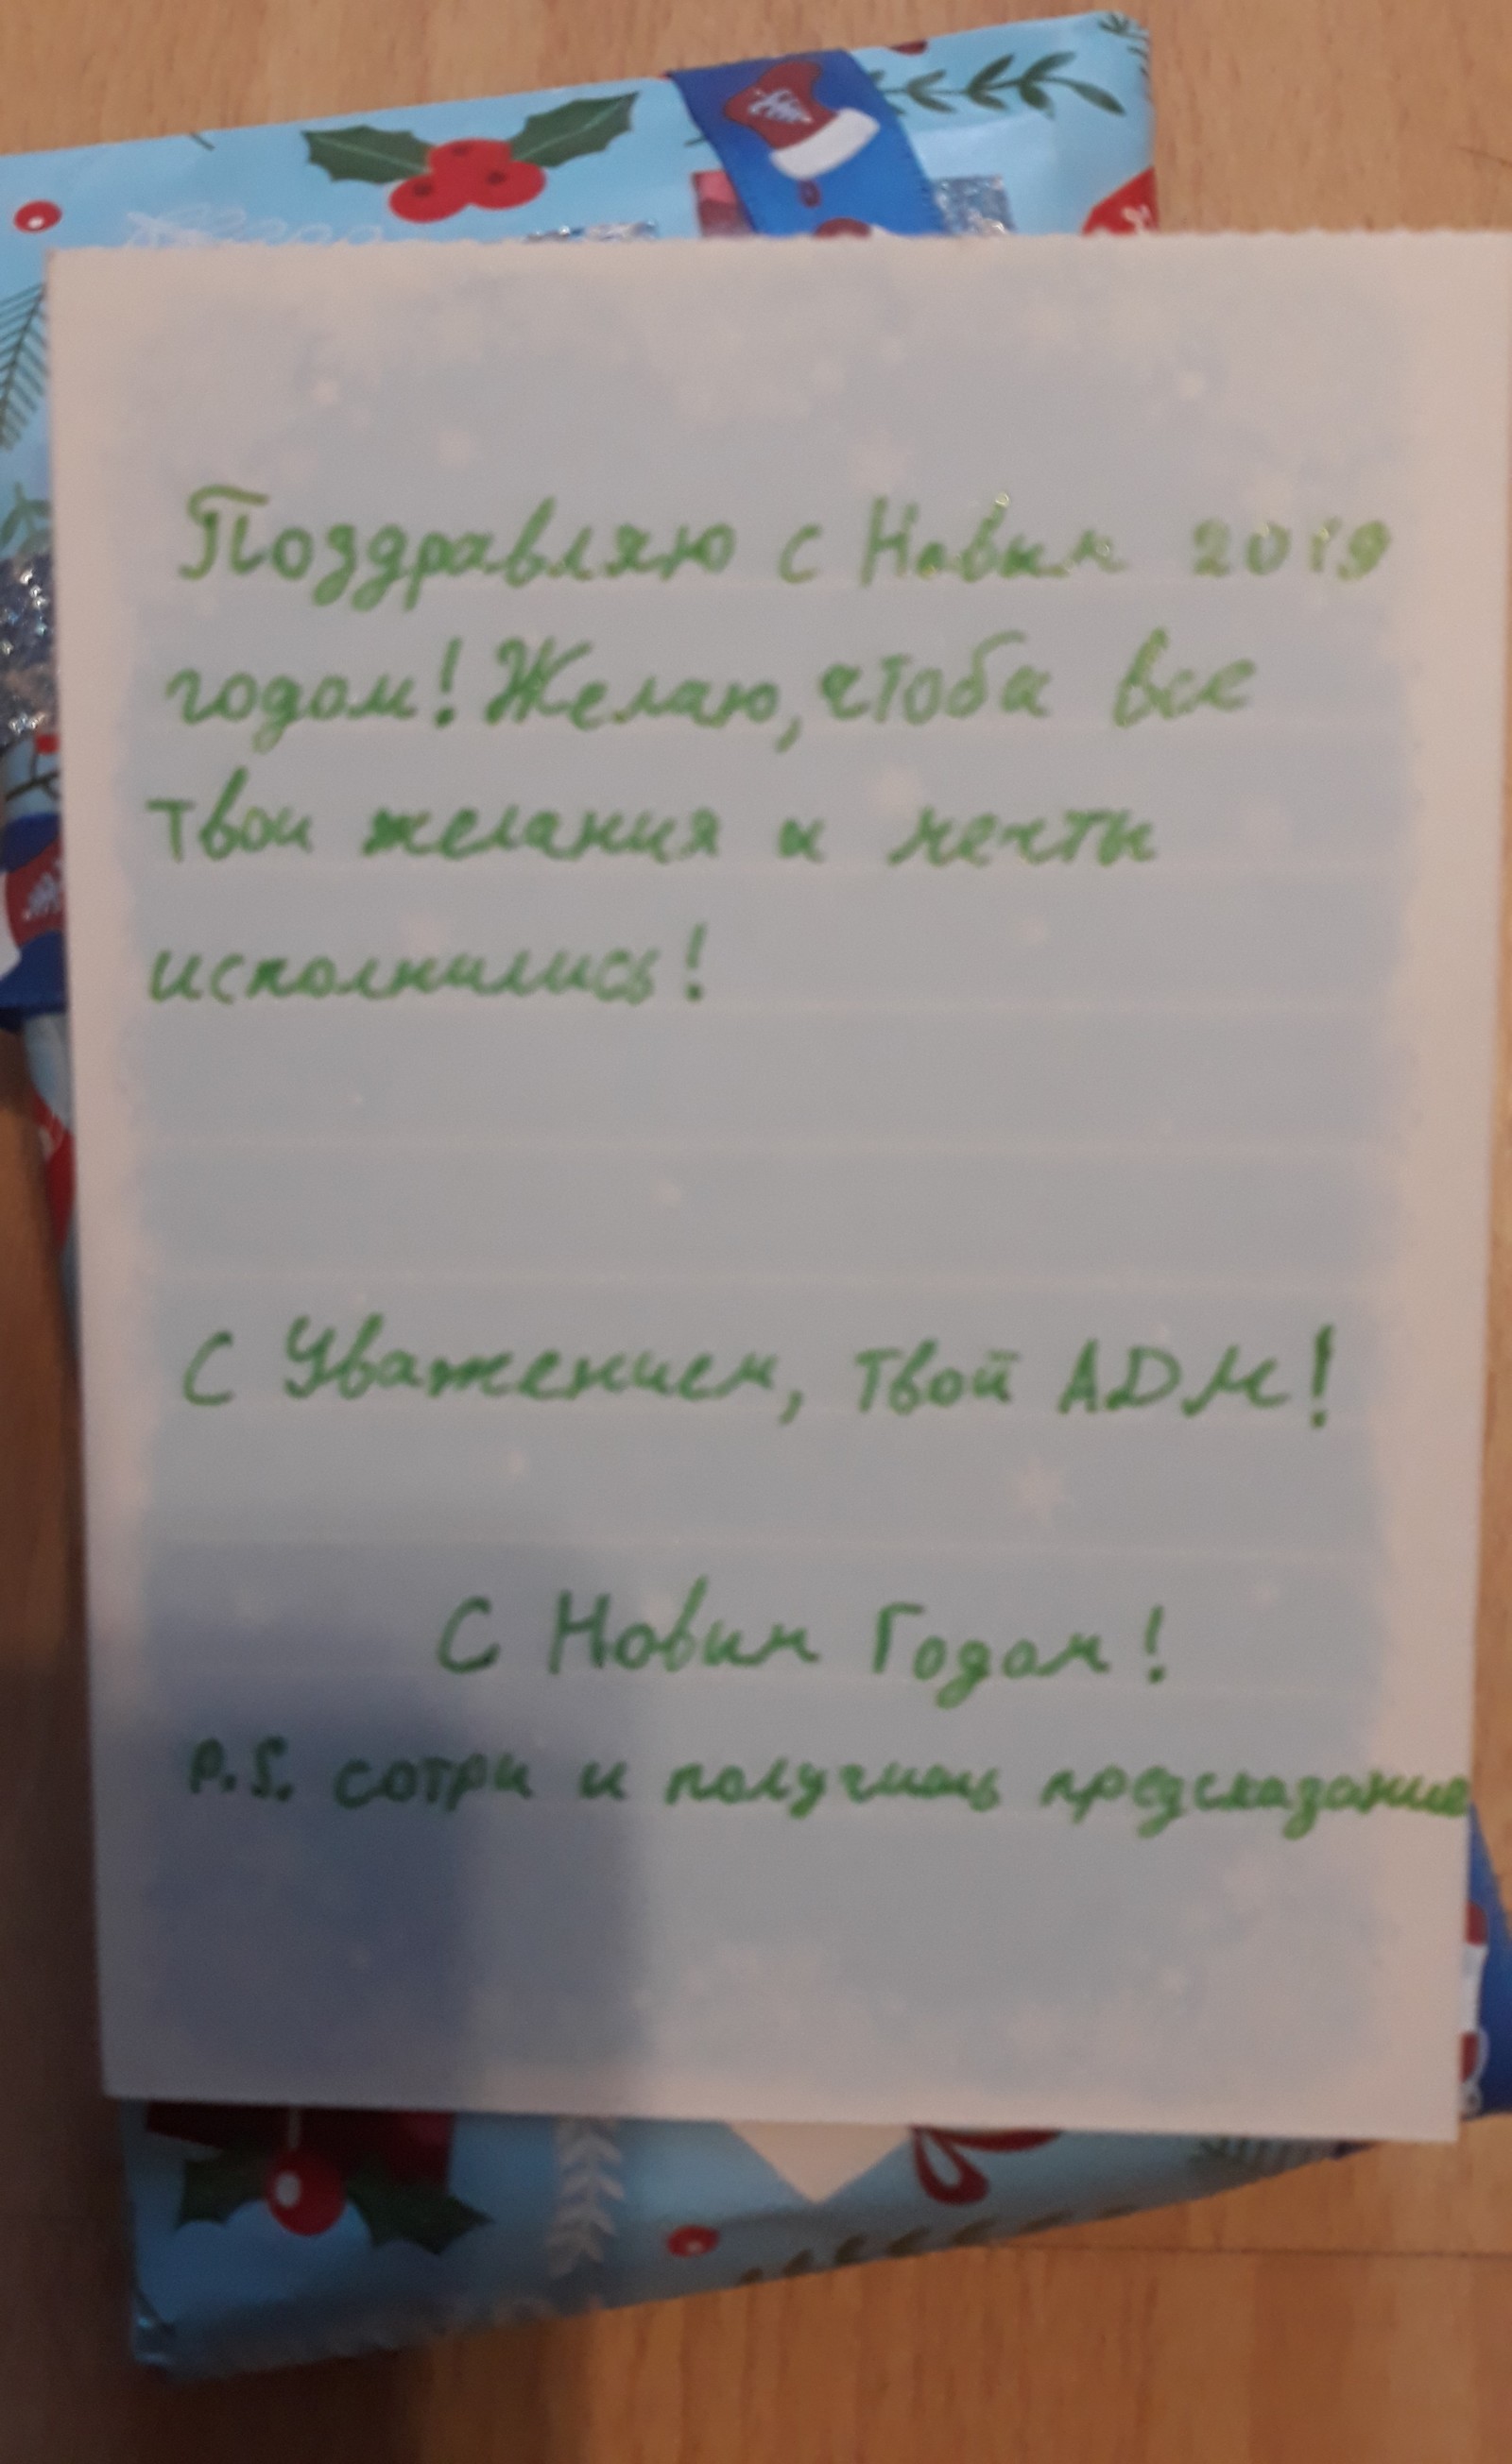 Поздравляю с Новым 2019
годом! Желаю, чтобы все
твои желания и мечты
исполнились!
С Уважением, твой АДМ!
С Новым Годом!
P.S. сотри и получишь предсказание